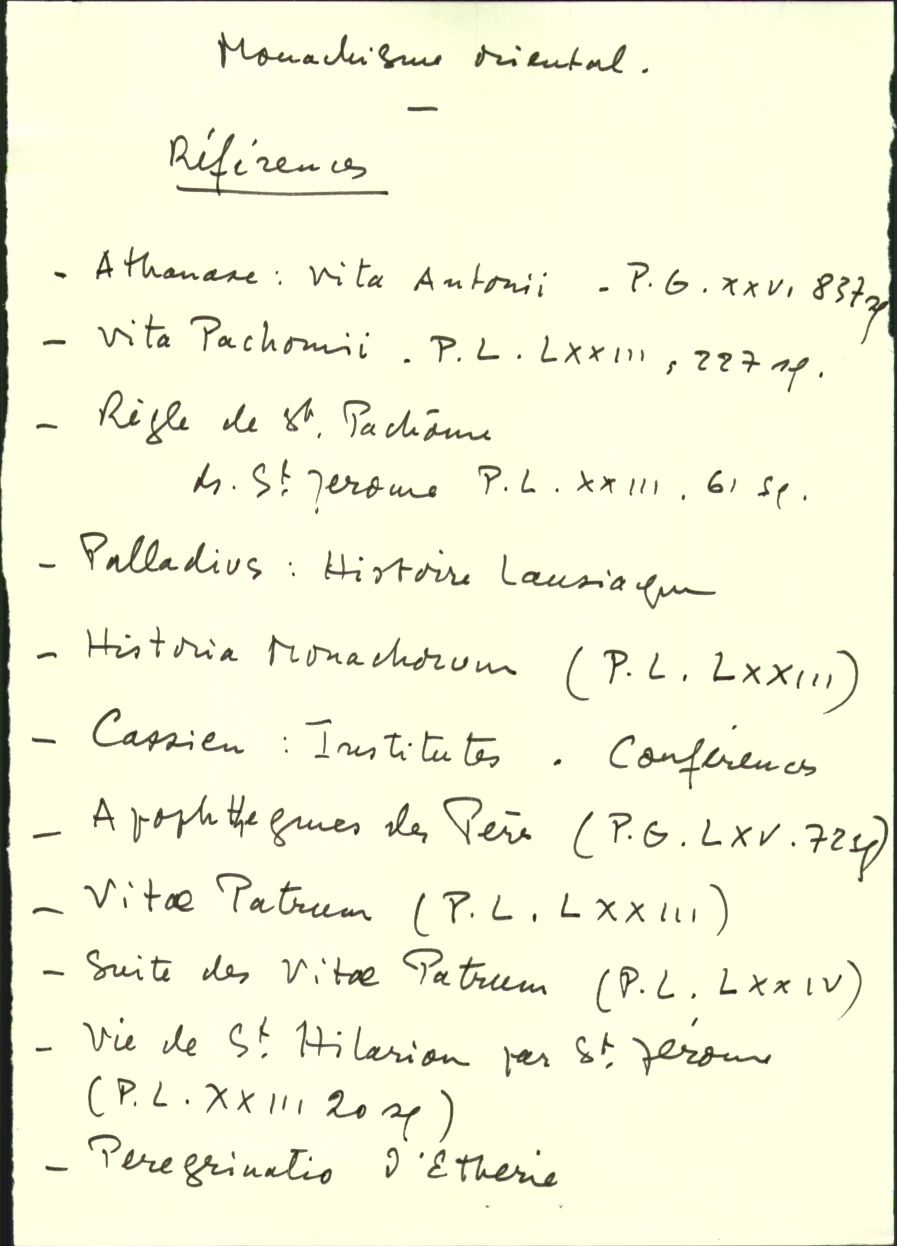 Monachisme oriental.
—
Références
- Athanase : Vita Antonii - P.G. XXVI 837 sq
- Vita Pachomii . P.L. LXXIII, 227 sq.
- Règle de St. Pachôme
ds. St Jerome P.L. XXIII. 61 sq.
- Palladius : Histoire Lausiaque
- Historia Monachorum (P.L. LXXIII)
- Cassien : Institutes . Conférences
- Apophthegmes des Pères (P.G. LXV. 72 sq)
- Vitæ Patrum (P.L. LXXIII)
- Suite des Vitæ Patrum (P.L. LXXIV)
- Vie de St. Hilarion par St. Jérome
(P.L. XXIII 20 sq)
- Peregrinatio d'Etherie